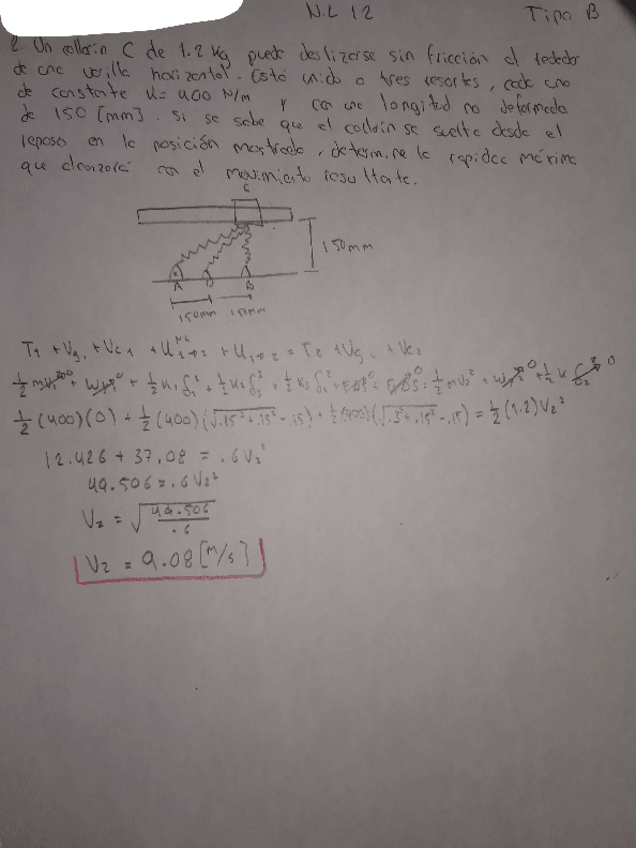 N.L 12 Tipo B
2. Un collarin C de 1.2 kg puede deslizarse sin fricción al rededor
de una varilla horizontal. Está unido a tres resortes, cada uno
de constante K= 400 N/m y con una longitud no deformada
de 150 [mm]. si se sabe que el collarin se suelta desde el
reposo en la posición mostrada, determine la rapidez máxima
que alcanzará con el movimiento resultate.
C
150mm
A D B
150mm 150mm
T1 + Vg1 + Ve1 + U1→2 + U1→2 = T2 + Vg2 + Ve2
1/2 (400)(0) + 1/2 (400)(√.15²+.15² -.15) + 1/2 (400)(√.3²+.15² -.15) = 1/2 (1.2)V2²
12.426 + 37,08 = .6V2²
49.506 = .6V2²
V2 = √49.506/.6
V2 = 9.08 [m/s]